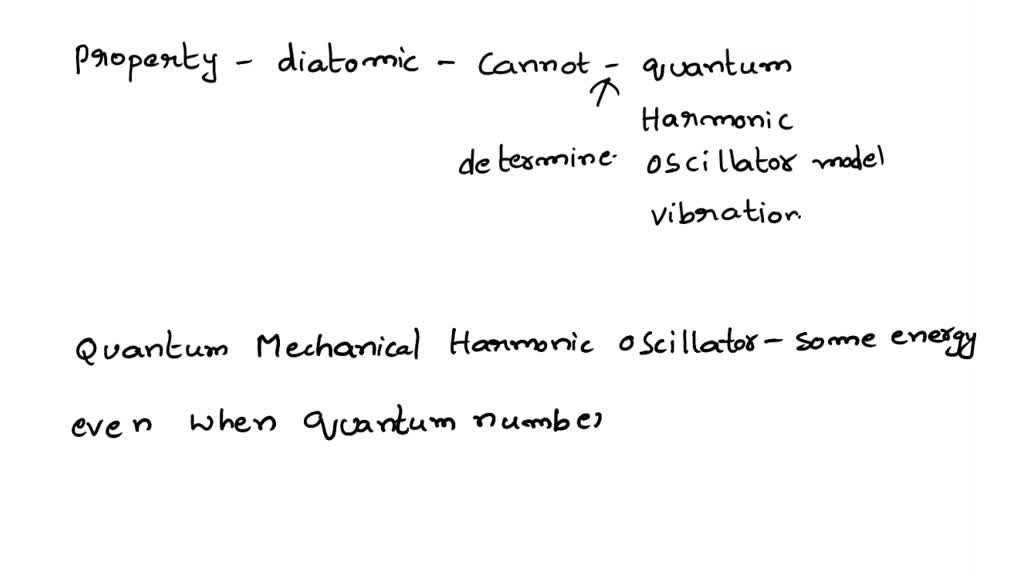 Property - diatomic - cannot - quantum
Harmonic
determine. oscillator model
vibration
Quantum Mechanical Harmonic oscillator - some energy
even when quantum number